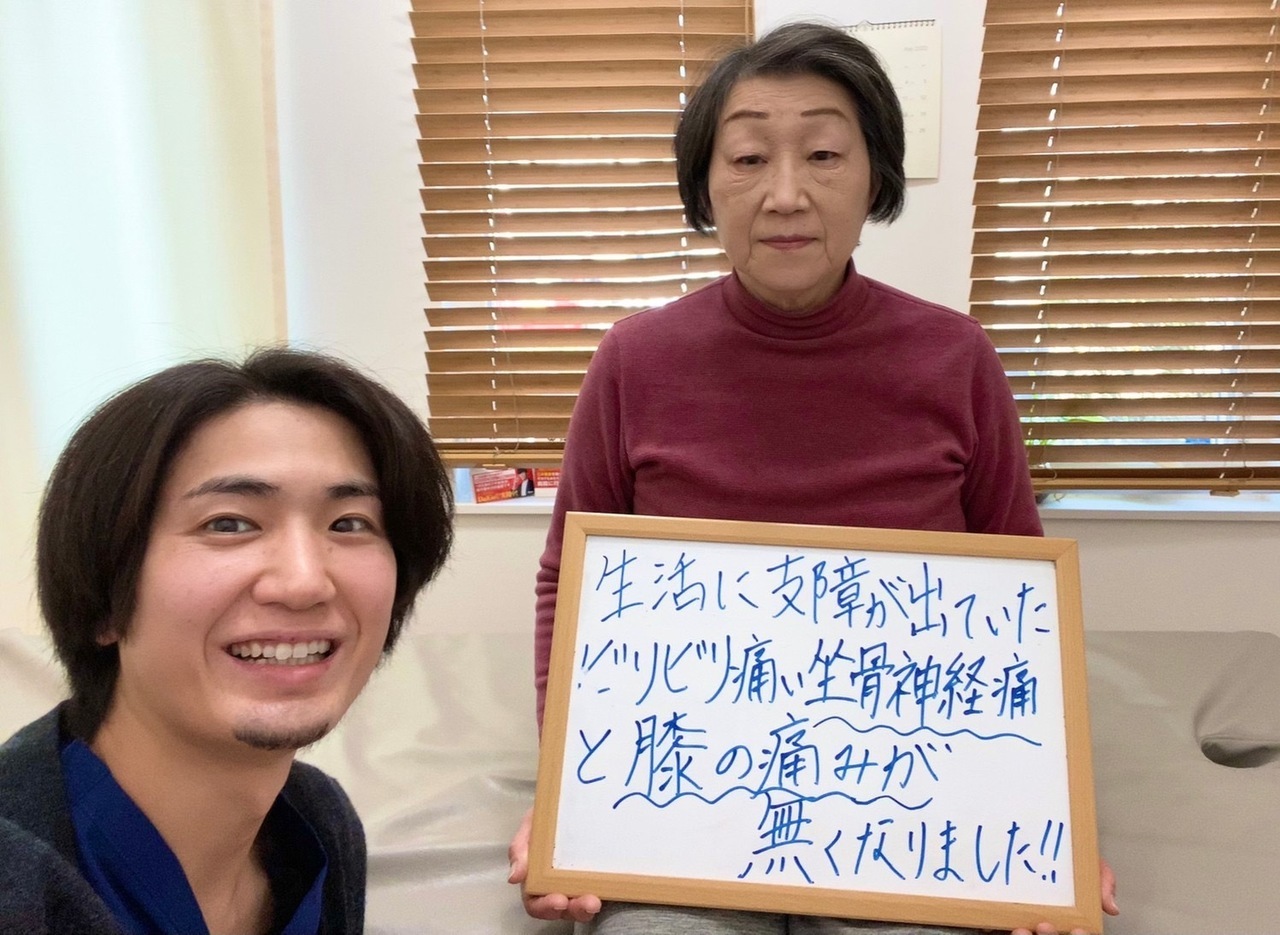 生活に支障が出ていた
ビリビリ痛い坐骨神経痛
と膝の痛みが
無くなりました!!